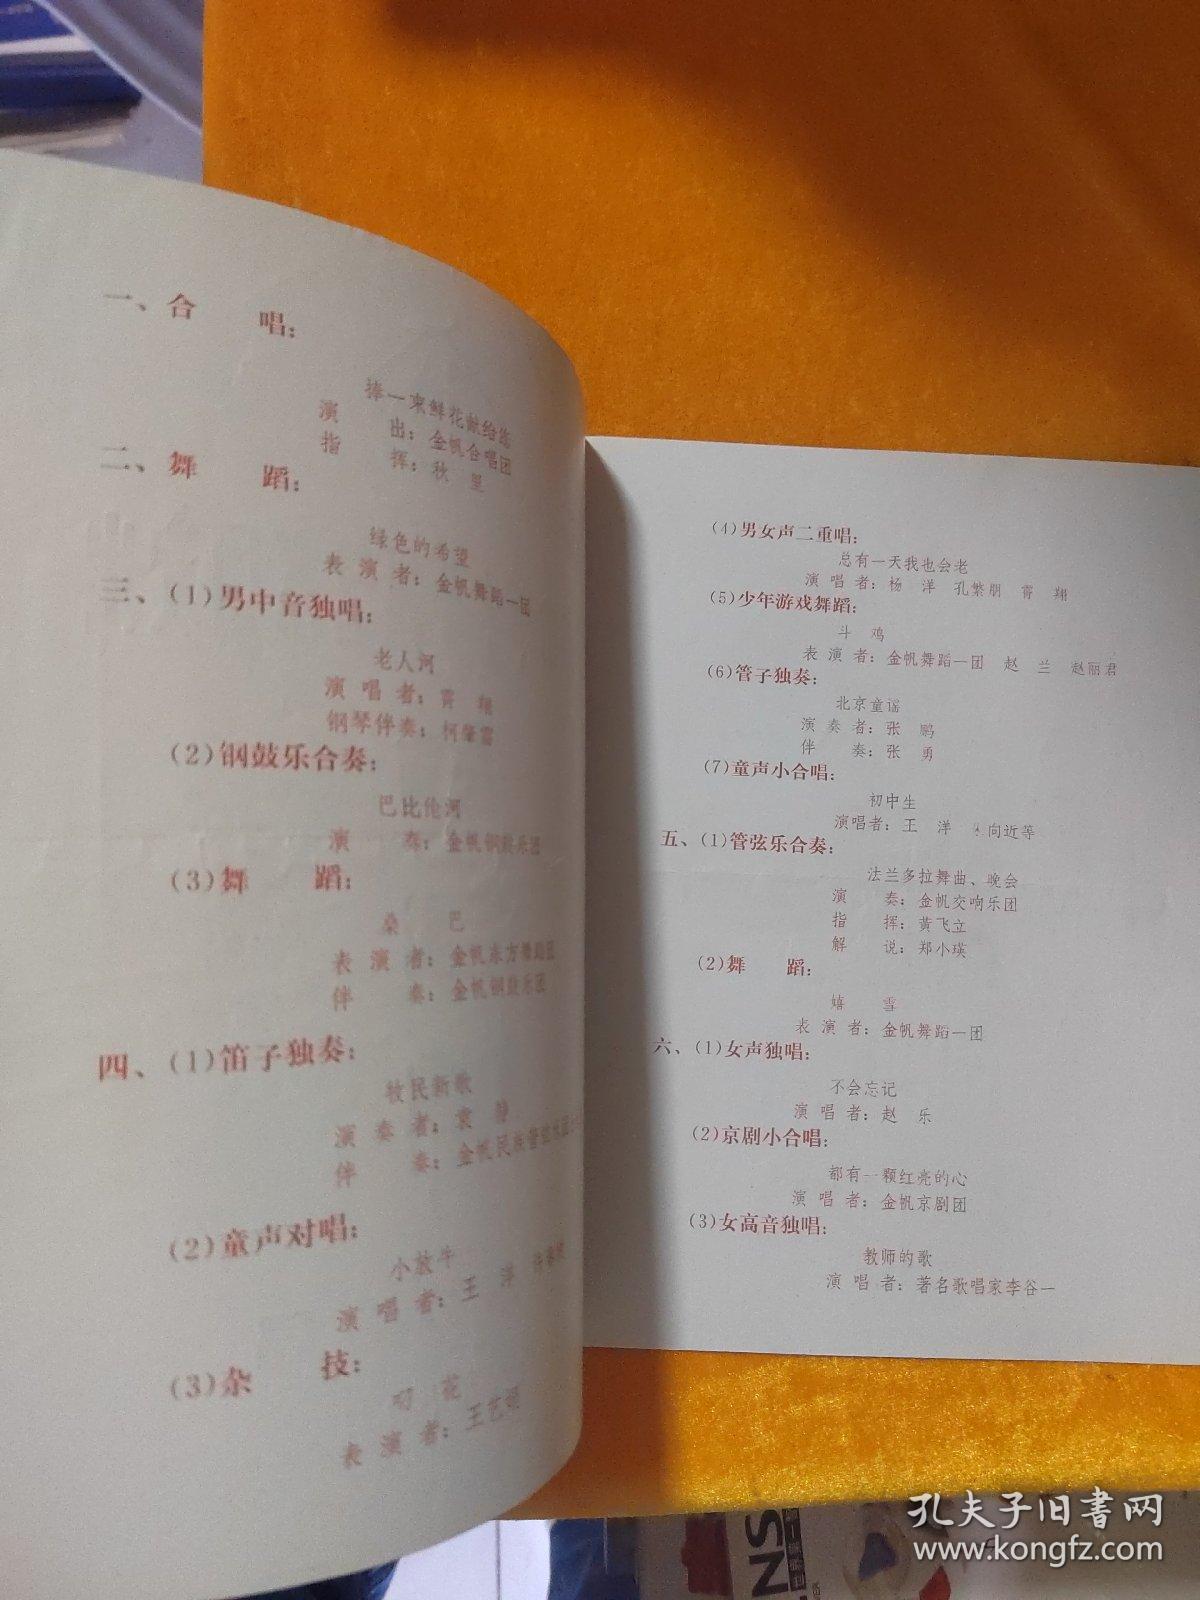 一、合 唱：
捧一束鲜花献给您
演 出：金帆合唱团
指 挥：秋里
二、舞 蹈：
绿色的希望
表演者：金帆舞蹈一团
三、(1)男中音独唱：
老人河
演唱者：霄翔
钢琴伴奏：柯肇雷
(2)钢鼓乐合奏：
巴比伦河
演 奏：金帆钢鼓乐团
(3)舞 蹈：
桑 巴
表演者：金帆东方舞蹈团
伴 奏：金帆钢鼓乐团
四、(1)笛子独奏：
牧民新歌
演奏者：袁静
伴 奏：金帆民族管弦乐团
(2)童声对唱：
小放牛
演唱者：王 洋
(3)杂 技：
叼花
表演者：王艺
(4)男女声二重唱：
总有一天我也会老
演唱者：杨 洋 孔繁朋 霄 翔
(5)少年游戏舞蹈：
斗 鸡
表演者：金帆舞蹈一团 赵 兰 赵丽君
(6)管子独奏：
北京童谣
演奏者：张 鹏
伴 奏：张 勇
(7)童声小合唱：
初中生
演唱者：王 洋 向近等
五、(1)管弦乐合奏：
法兰多拉舞曲、晚会
演 奏：金帆交响乐团
指 挥：黄飞立
解 说：郑小瑛
(2)舞 蹈：
嬉 雪
表演者：金帆舞蹈一团
六、(1)女声独唱：
不会忘记
演唱者：赵 乐
(2)京剧小合唱：
都有一颗红亮的心
演唱者：金帆京剧团
(3)女高音独唱：
教师的歌
演唱者：著名歌唱家李谷一
NS
孔夫子旧书网
www.kongfz.com